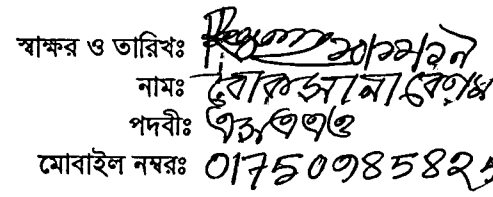 স্বাক্ষর ও তারিখঃ
নামঃ রোকসানা বেগম
পদবীঃ এসএএও
মোবাইল নম্বরঃ 01750985825